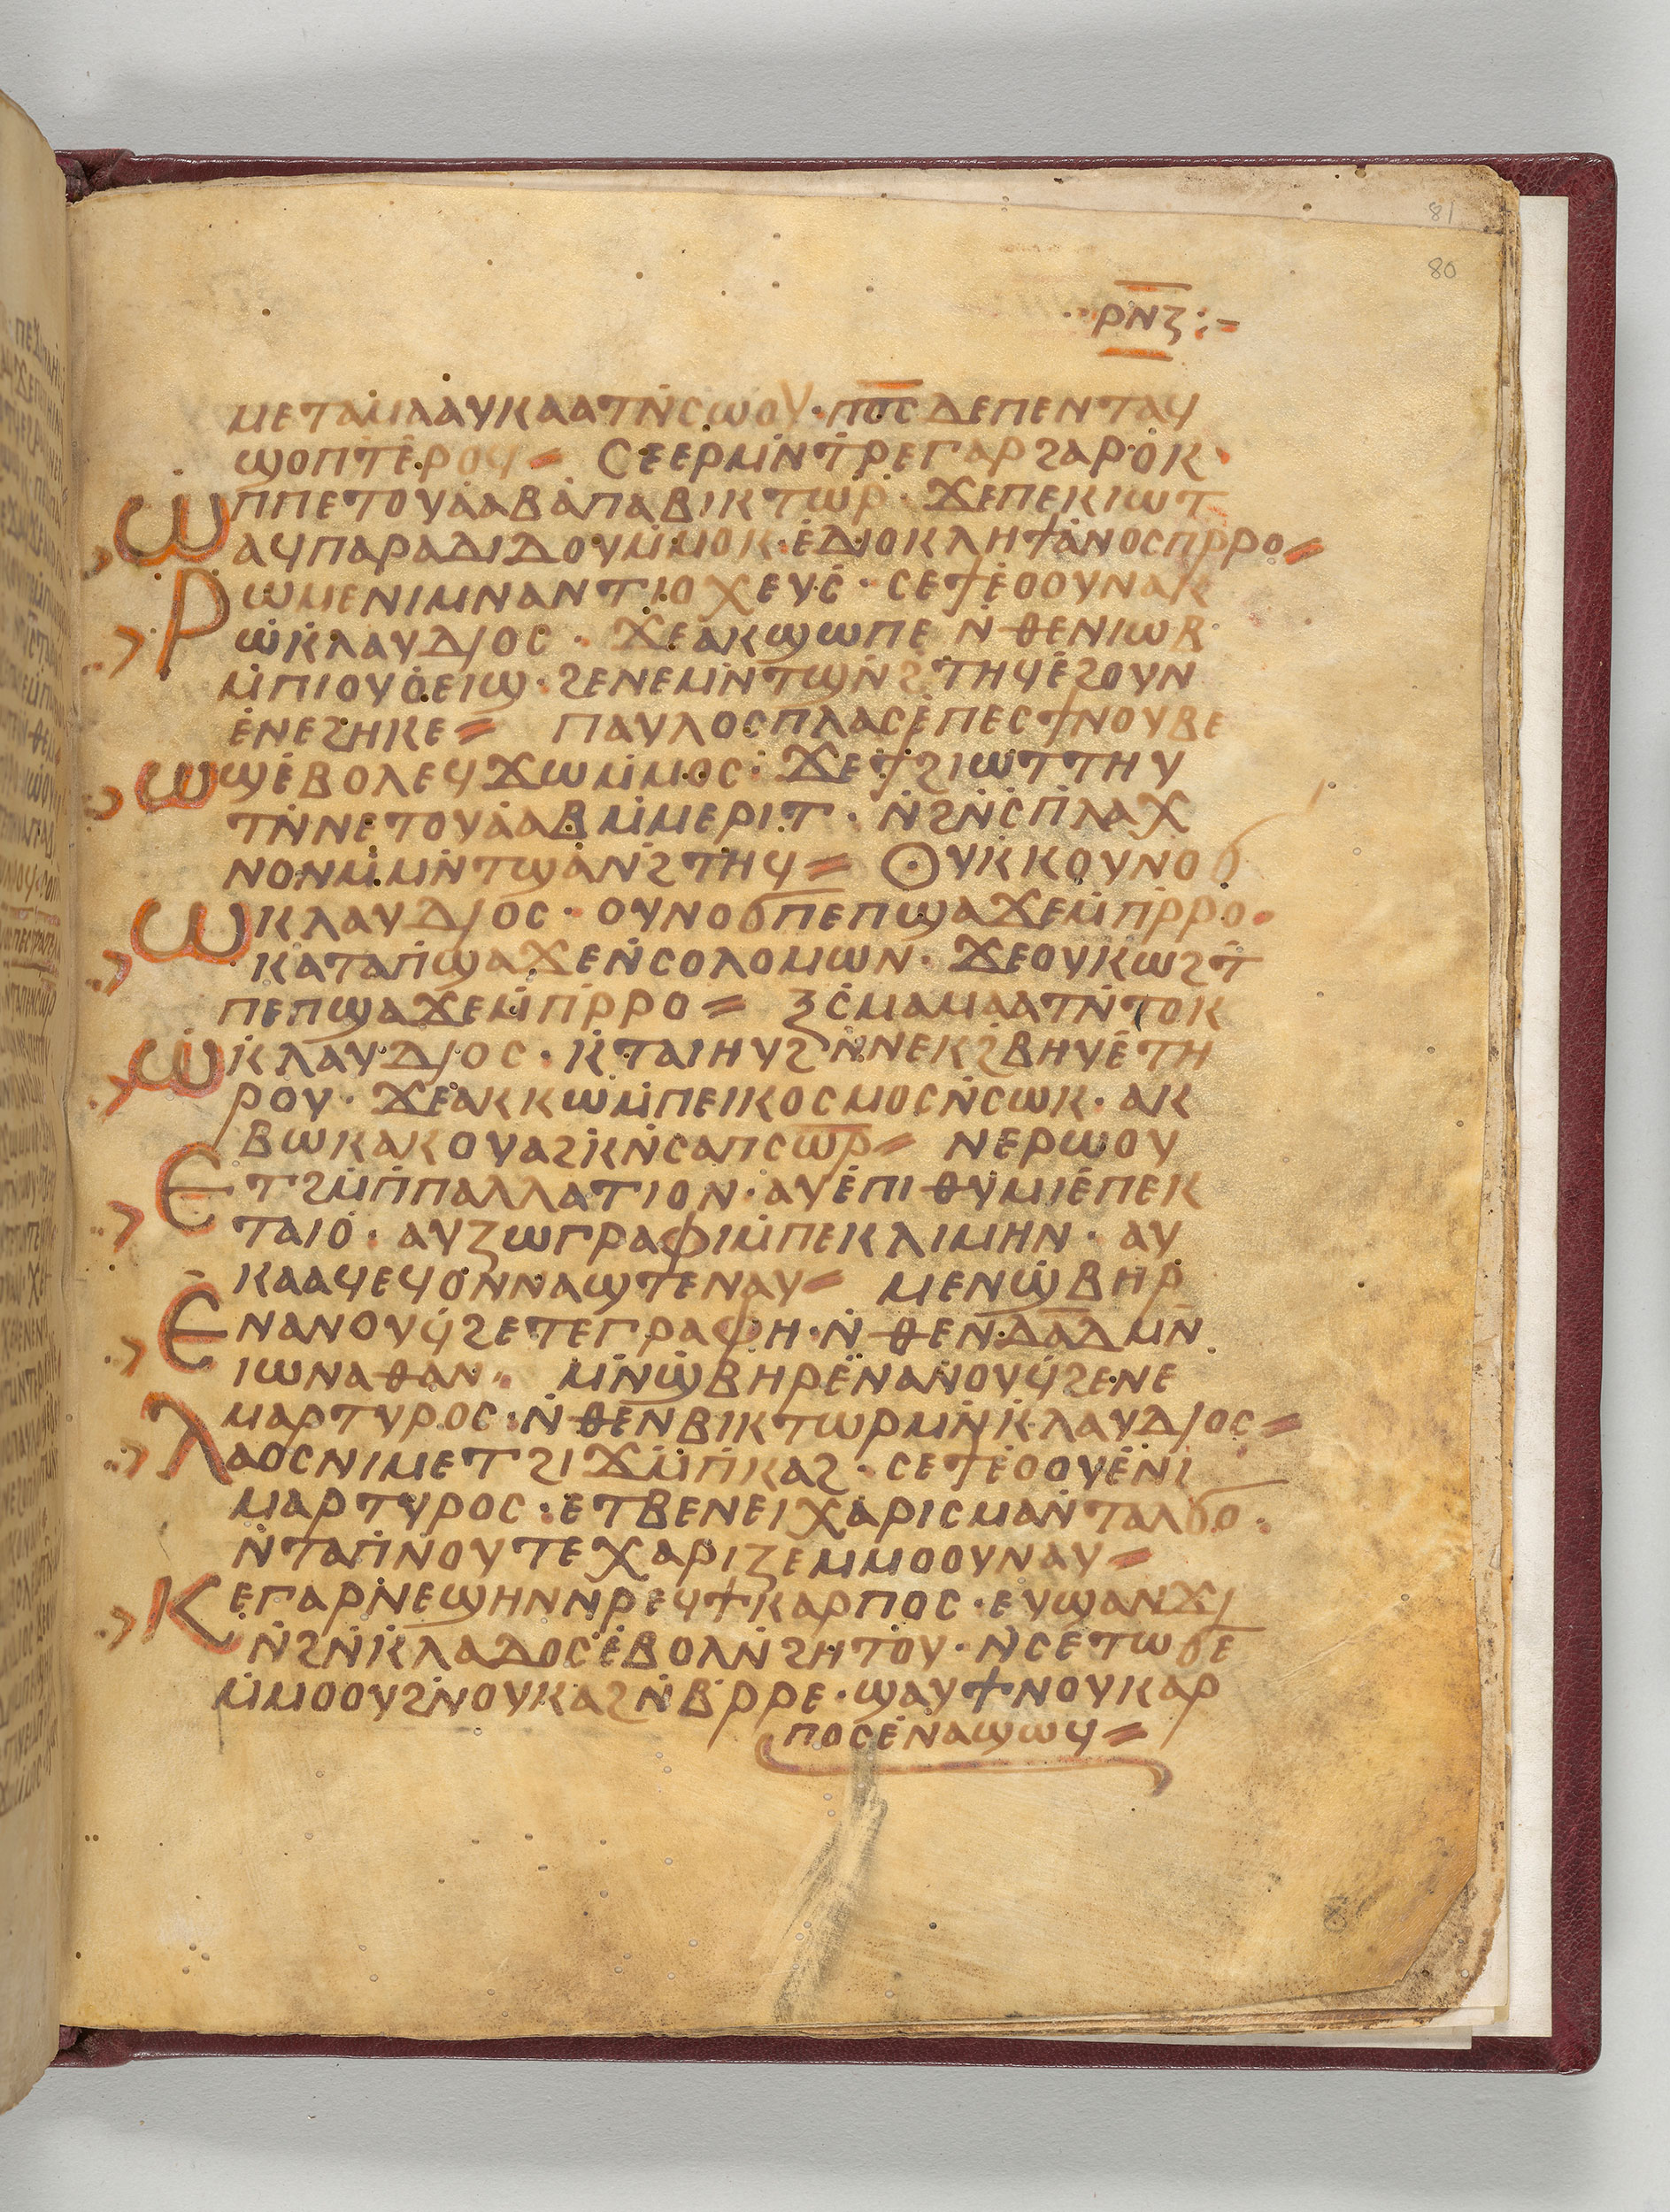 81
80
ⲣⲛⲍ
ⲙⲉⲧⲁⲙⲁⲁⲩⲕⲁⲁⲧⲛ̇ⲥⲱⲟⲩ · ⲡ̅ⲟ̅ⲥ̅ ⲇⲉⲡⲉⲛⲧⲁϥ
ϣⲟⲡⲧⲉ̇ⲣⲟϥ = ⲥⲉⲉⲣⲙⲛ̇ⲧⲣⲉⲅⲁⲣϩⲁⲣⲟⲕ ·
ⲱ̇ⲡⲡⲉⲧⲟⲩⲁⲁⲃⲁ̇ⲡⲁⲃⲓⲕⲧⲱⲣ · ϫⲉⲡⲉⲕⲓⲱⲧ
ⲁϥⲡⲁⲣⲁⲇⲓⲇⲟⲩⲙ̇ⲙⲟⲕ · ⲉ̇ⲇⲓⲟⲕⲗⲏϯⲁ̇ⲛⲟⲥⲡⲣ̇ⲣⲟ =
ⲣⲱⲙⲉⲛⲓⲙⲛⲁⲛⲧⲓⲟⲭⲉⲩⲥ̇ · ⲥⲉϯⲉ̇ⲟⲟⲩⲛⲁⲕ
ⲱ̇ⲕ̇ⲗⲁⲩⲇⲓⲟⲥ · ϫⲉⲁⲕϣⲱⲡⲉ ⲛ̇ⲑⲉⲛⲓⲱⲃ
ⲙ̇ⲡⲓⲟⲩⲟ̇ⲉⲓϣ · ϩⲉⲛⲉⲙⲛ̇ⲧϣⲛ̇ϩⲧⲏϥⲉ̇ϩⲟⲩⲛ
ⲉ̇ⲛⲉϩⲏⲕⲉ = ⲡⲁⲩⲗⲟⲥⲡⲗⲁⲥⲉ̇ⲡⲉⲥϯⲛⲟⲩⲃⲉ
ⲱϣⲉ̇ⲃⲟⲗⲉϥϫⲱⲙ̇ⲙⲟⲥ · ϫⲉϯϩⲓⲱⲧⲧⲏⲩ
ⲧⲛ̇ⲛⲉⲧⲟⲩⲁⲁⲃⲙ̇ⲙⲉⲣⲓⲧ · ⲛ̇ϩⲛ̇ⲥⲡ̇ⲗⲁⲭ
ⲛⲟⲛⲙ̇ⲙⲛ̇ⲧϣⲁⲛ̇ϩⲧⲏϥ = ⲟⲩⲕ̇ⲕⲟⲩⲛⲟϭ
ⲱⲕⲗⲁⲩⲇⲓⲟⲥ · ⲟⲩⲛⲟϭⲡⲉⲡϣⲁϫⲉⲙ̇ⲡⲣ̇ⲣⲟ ·
ⲕⲁⲧⲁⲡ̇ϣⲁϫⲉⲛ̇ⲥⲟⲗⲟⲙⲱⲛ · ϫⲉⲟⲩⲕⲱϩⲧ̇
ⲡⲉⲡϣⲁϫⲉⲙ̇ⲡⲣ̇ⲣⲟ = ⲍⲥ̇ⲙⲁⲙⲁⲁⲧⲛ̇ⲧⲟⲕ
ⲱ̇ⲕ̇ⲗⲁⲩⲇⲓⲟⲥ · ⲕ̇ⲧⲁⲓⲏⲩϩⲛ̇ⲛⲉⲕϩⲃⲏⲩⲉ̇ⲧⲏ
ⲣⲟⲩ · ϫⲉⲁⲕⲕⲱⲙ̇ⲡⲉⲓⲕⲟⲥⲙⲟⲥⲛ̇ⲥⲱⲕ · ⲁⲕ
ⲃⲱⲕⲁⲕⲟⲩⲁϩⲕ̇ⲛ̇ⲥⲁⲡⲥ̅ⲱ̅ⲣ̅ = ⲛⲉⲣⲱⲟⲩ
ⲉⲧϩⲙ̇ⲡ̇ⲡⲁⲗⲗⲁⲧⲓⲟⲛ · ⲁⲩⲉ̇ⲡⲓⲑⲩⲙⲓⲉ̇ⲡⲉⲕ
ⲧⲁⲓⲟ̇ · ⲁⲩⲍⲱⲅⲣⲁⲫⲓⲙ̇ⲡⲉⲕⲗⲓⲙⲏⲛ · ⲁⲩ
ⲕⲁⲁϥⲉϥⲟ̇ⲛ̇ⲛⲁϣⲧⲉⲛⲁⲩ = ⲙⲉⲛϣ̇ⲃⲏⲣ
ⲉ̇ⲛⲁⲛⲟⲩϥ̇ϩⲉⲧⲉⲅⲣⲁⲫⲏ · ⲛ̇ⲑⲉⲛⲇⲁⲇⲙⲛ̇
ⲓⲱⲛⲁⲑⲁⲛ · ⲙⲛ̇ϣ̇ⲃⲏⲣⲉ̇ⲛⲁⲛⲟⲩϥ̇ϩⲉⲛⲉ
ⲙⲁⲣⲧⲩⲣⲟⲥ · ⲛ̇ⲑⲉⲛⲃⲓⲕⲧⲱⲣⲙⲛ̇ⲕ̇ⲗⲁⲩⲇⲓⲟⲥ =
ⲗⲁⲟⲥⲛⲓⲙⲉⲧϩⲓϫⲙ̇ⲡ̇ⲕⲁϩ · ⲥⲉϯⲉ̇ⲟⲟⲩⲉ̇ⲛⲓ
ⲙⲁⲣⲧⲩⲣⲟⲥ · ⲉⲧⲃⲉⲛⲉⲓⲭⲁⲣⲓⲥⲙⲁⲛ̇ⲧⲁⲗϭⲟ ·
ⲛ̇ⲧⲁⲡ̇ⲛⲟⲩⲧⲉⲭⲁⲣⲓⲍⲉⲙⲙⲟⲟⲩⲛⲁⲩ =
ⲕⲉⲅⲁⲣⲛⲉϣⲏⲛⲛ̇ⲣⲉϥϯⲕⲁⲣⲡⲟⲥ · ⲉⲩϣⲁⲛϫⲓ
ⲛ̇ϩⲛ̇ⲕ̇ⲗⲁⲇⲟⲥⲉ̇ⲃⲟⲗⲛ̇ϩⲏⲧⲟⲩ · ⲛ̇ⲥⲉⲧⲱϭⲉ
ⲙ̇ⲙⲟⲟⲩϩⲛ̇ⲟⲩⲕⲁϩⲛ̇ⲃⲣ̇ⲣⲉ · ϣⲁⲩϯⲛⲟⲩⲕⲁⲣ
ⲡⲟⲥⲉ̇ⲛⲁϣⲱϥ =